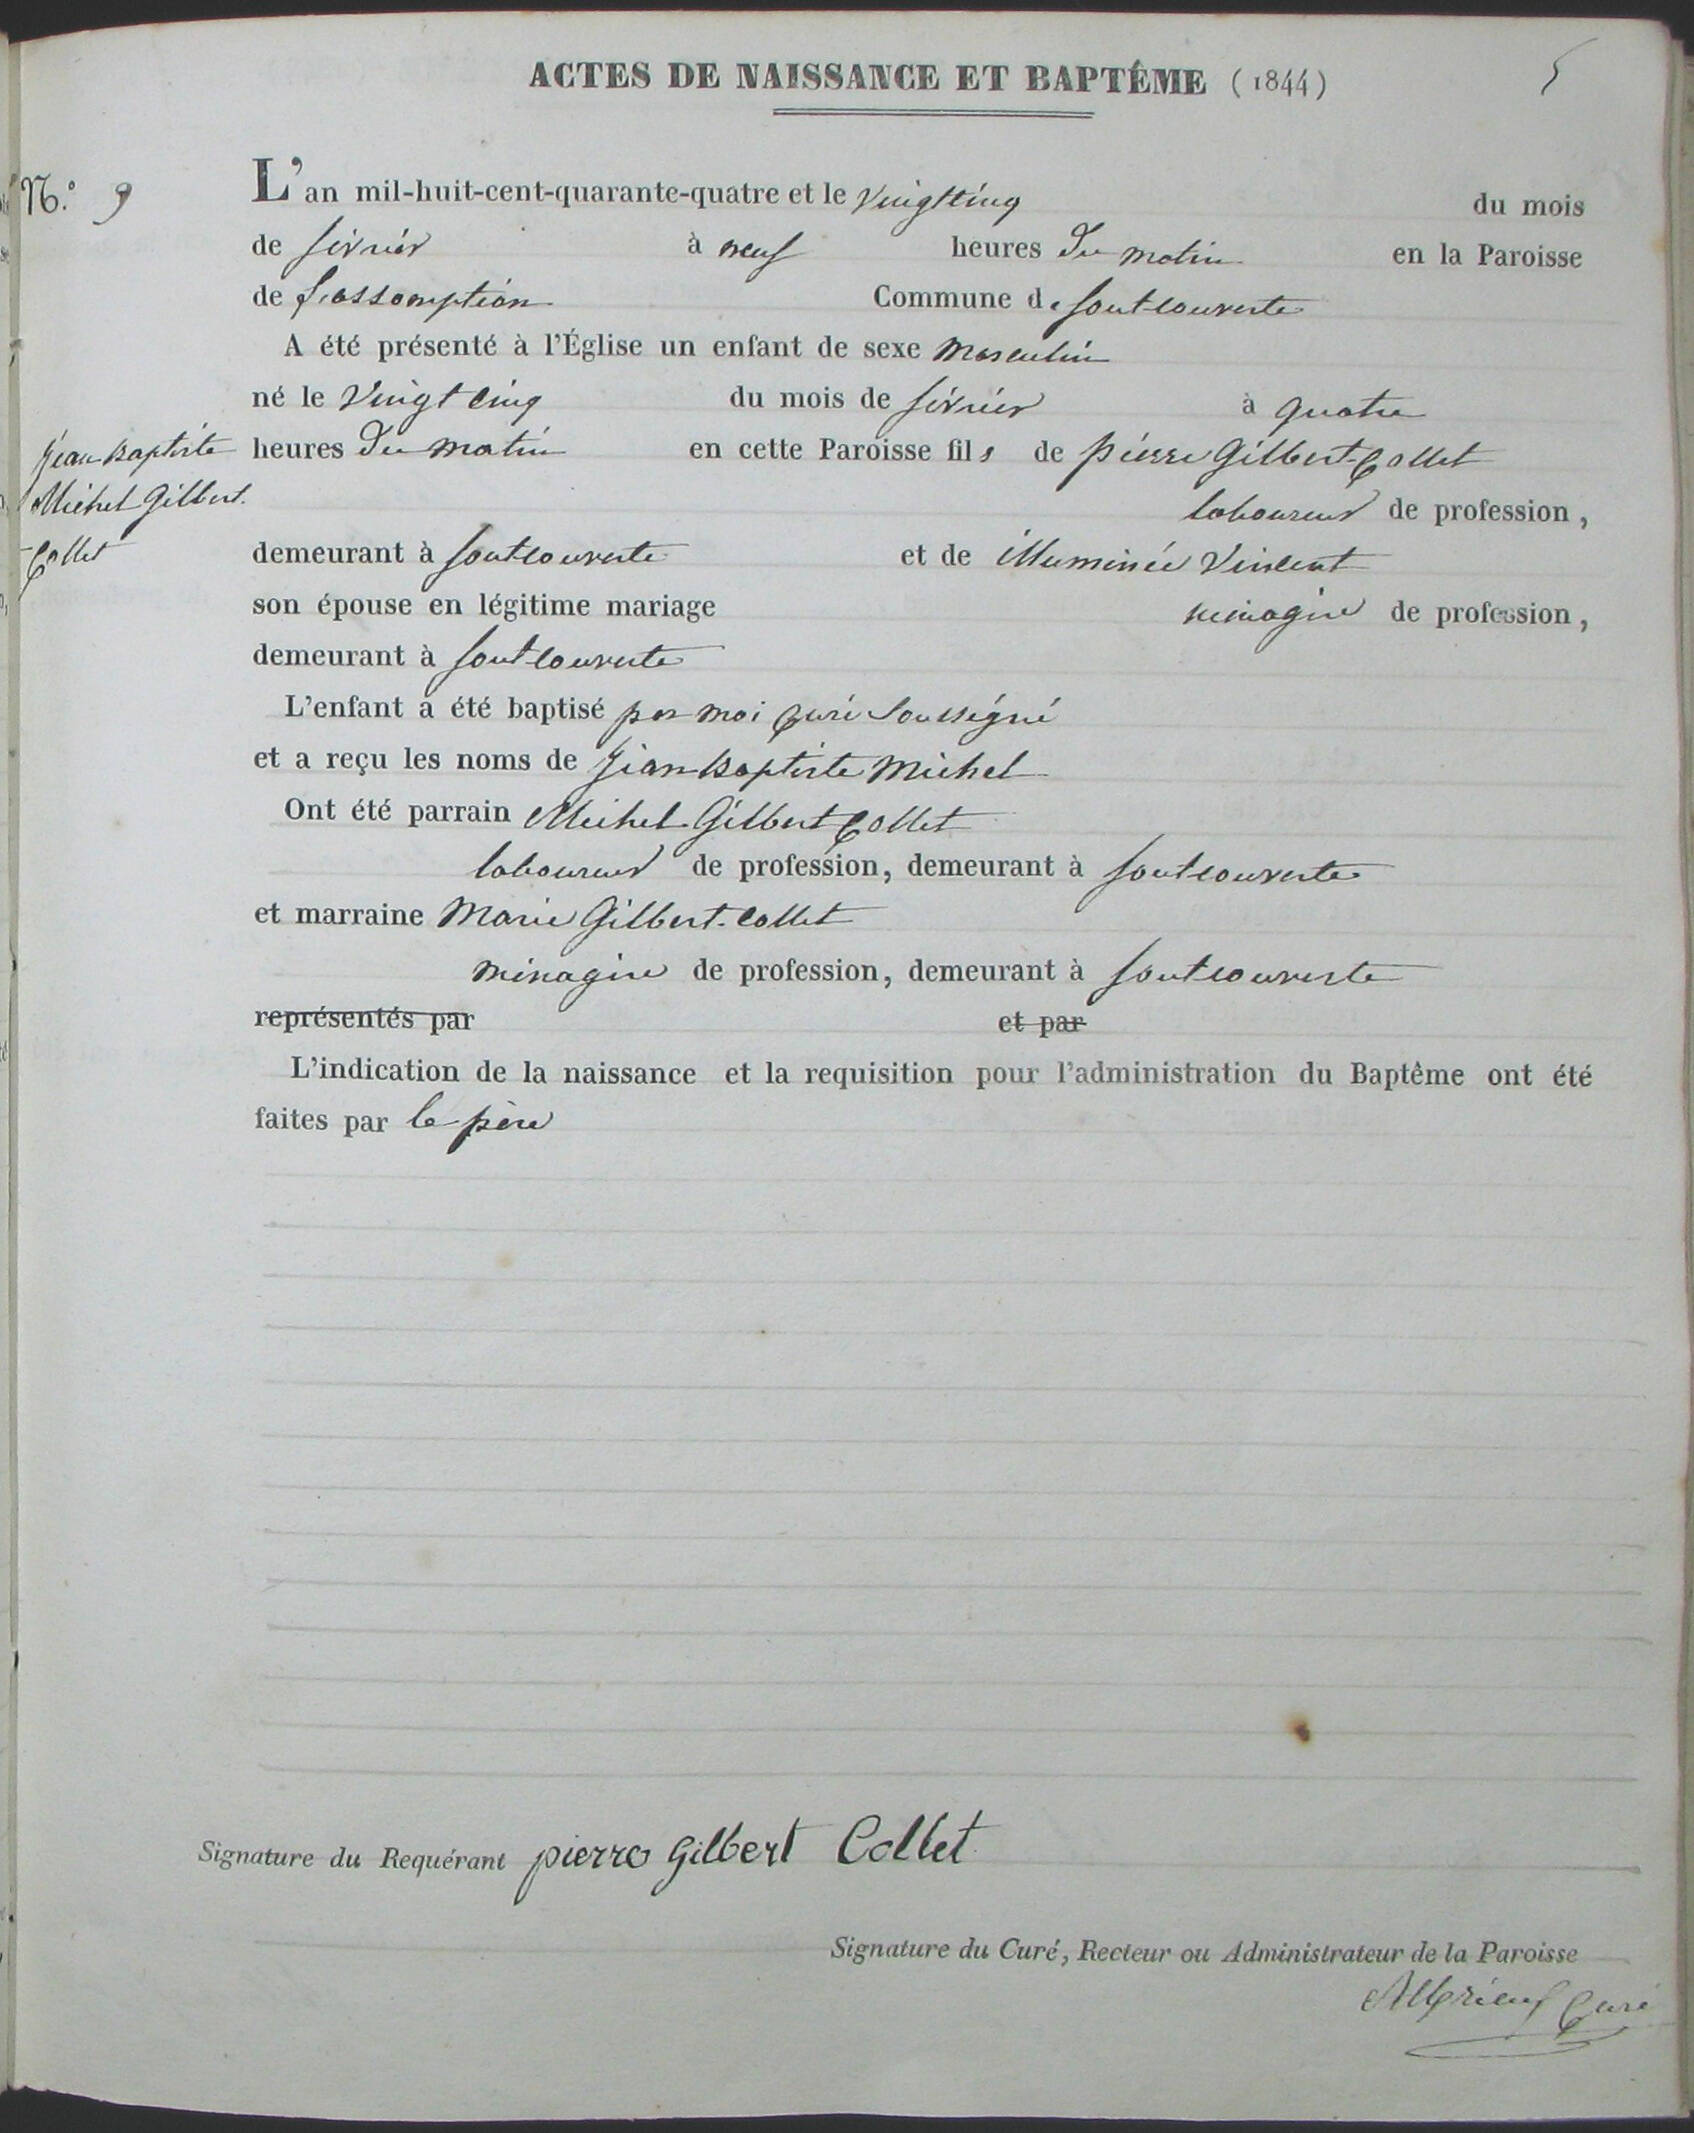 ACTES DE NAISSANCE ET BAPTÊME (1844)
5
N.° 9
L'an mil-huit-cent-quarante-quatre et le vingt cinq du mois
de février à neuf heures du matin en la Paroisse
de L'assomption Commune de fontcouverte
A été présenté à l'Église un enfant de sexe masculin
né le vingt cinq du mois de février à quatre
heures du matin en cette Paroisse fils de pierre Gilbert-Collet
laboureur de profession,
Jean Baptiste
Michel Gilbert
Collet
demeurant à fontcouverte et de illuminée Vincent
son épouse en légitime mariage ménagère de profession,
demeurant à fontcouverte
L'enfant a été baptisé par moi Curé soussigné
et a reçu les noms de Jean Baptiste Michel
Ont été parrain Michel Gilbert Collet
laboureur de profession, demeurant à fontcouverte
et marraine Marie Gilbert-Collet
ménagère de profession, demeurant à fontcouverte
représentés par et par
L'indication de la naissance et la requisition pour l'administration du Baptême ont été
faites par le père
Signature du Requérant pierre Gilbert Collet
Signature du Curé, Recteur ou Administrateur de la Paroisse
Curé